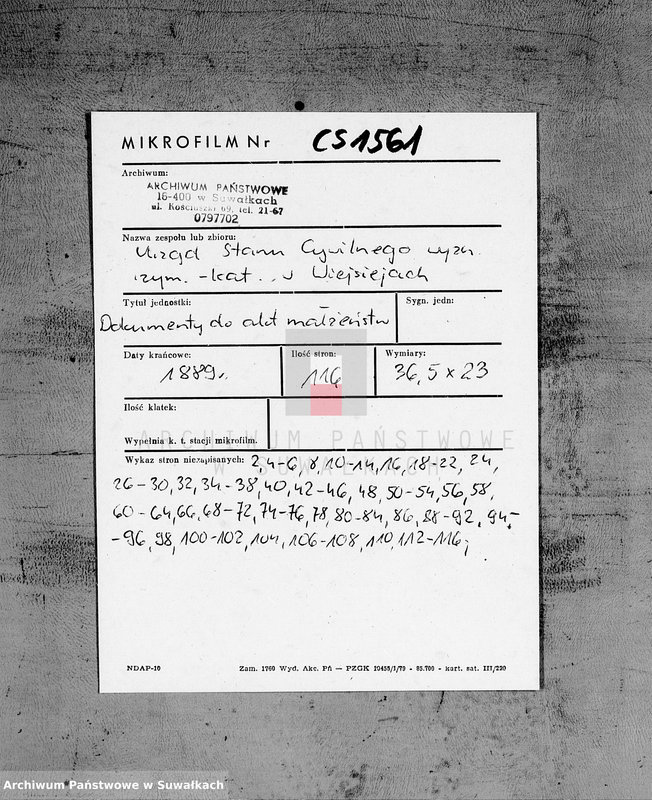 MIKROFILM Nr CS1561
Archiwum:
ARCHIWUM PAŃSTWOWE
16-400 w Suwałkach
ul. Kościuszki 69, tel. 21-67
0797702
Nazwa zespołu lub zbioru:
Urząd Stanu Cywilnego wyzn.
rzym. -kat. w Wiejsiejach
Tytuł jednostki: Sygn. jedn:
Dokumenty do akt małżeństw
Daty krańcowe: Ilość stron: Wymiary:
1889r. 116 36,5 x 23
Ilość klatek:
Wypełnia k. t. stacji mikrofilm.
ARCHIWUM PAŃSTWOWE
W SUWAŁKACH
Wykaz stron niezapisanych: 2,4-6, 8, 10-14, 16, 18-22, 24,
26-30, 32, 34-38, 40, 42-46, 48, 50-54, 56, 58,
60-64, 66, 68-72, 74-76, 78, 80-84, 86, 88-92, 94-
-96, 98, 100-102, 104, 106-108, 110, 112-116;
NDAP-10 Zam. 1760 Wyd. Akc. Pń — PZGK 19458/I/79 - 85.700 - kart. sat. III/220
Archiwum Państwowe w Suwałkach